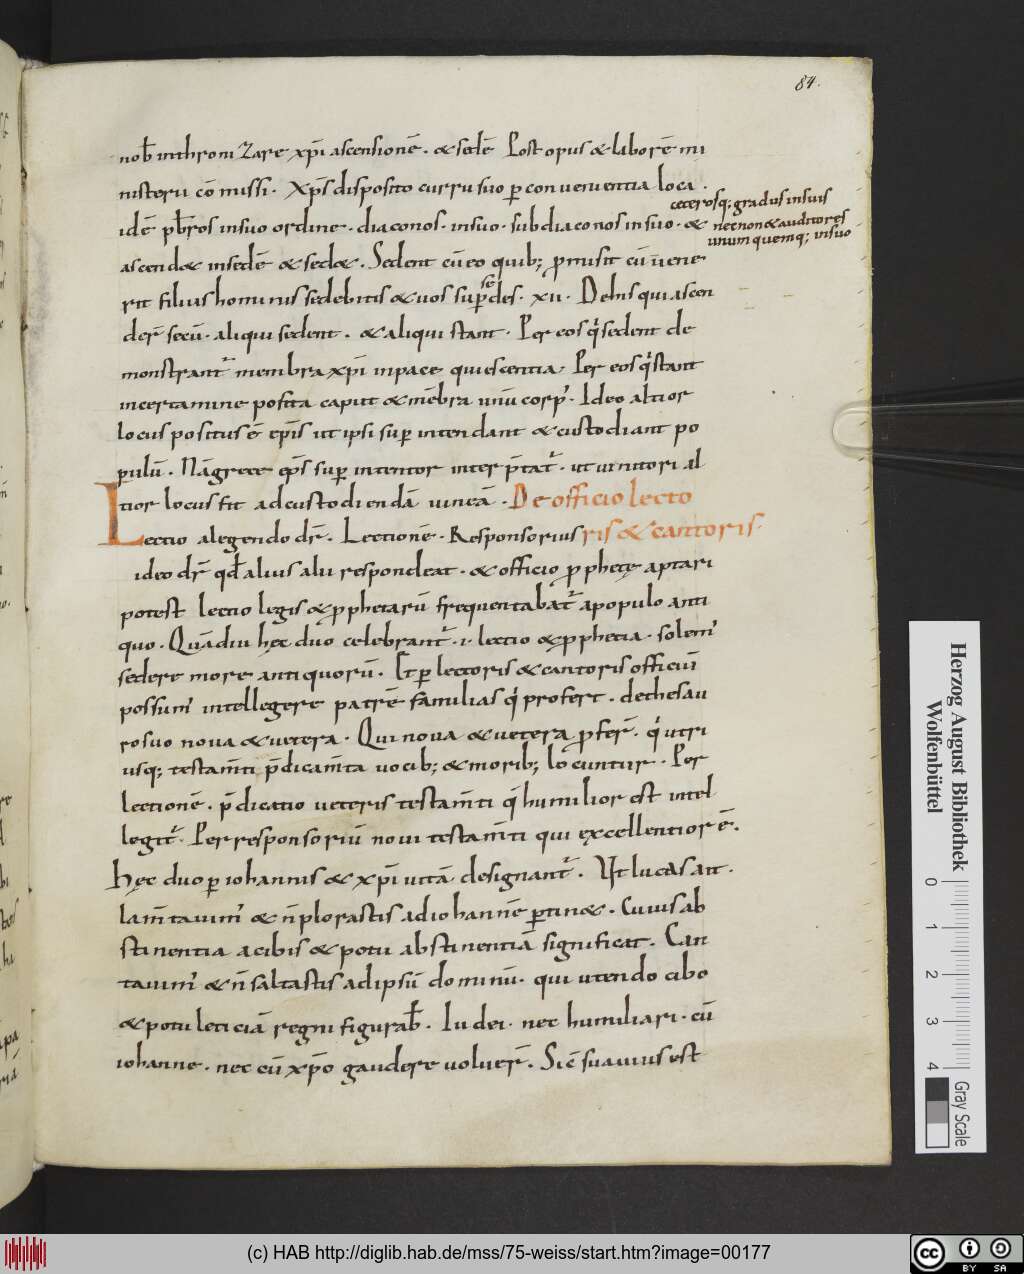 84.
nob̄ inthronizare xp̄i ascensionē. & sedē Post opus & laborē mi
nisterii cōmissi. Xp̄s disposito curru suo p̱ conuenientia loca.
ceterosq; gradus insuis
idē pb̄ros insuo ordine. diaconos. insuo. subdiaconos insuo. &
necnon & auditores
unum quemq; insuo
ascend& insedē & sed&. Sedent cū eo quib; promisit cū uene
rit filius hominis sedebitis & uos sup̱ sedes. xii. Dehis qui ascen
der̄ secū. aliqui sedent. & aliqui stant. Per eos qͥ sedent de
monstrant᷑ membra xp̄i inpace quiescentia. Per eos qͥ stant
incertamine posita caput & mēbra unū corp'. Ideo altior
locus positus ē ep̄is ut ipsi sup̱ intendant & custodiant po
p̱ulū. Nā grece ep̄s sup̱ intentor interp̄tat᷑. ut uinitori al
tior locus fit ad custodiendā uineā. De officio lecto
Lectio a legendo dr̄. Lectionē. Responsorius ris & cantoris.
ideo dr̄ qd̄ alius alii respondeat. & officio prophetę aptari
potest lectio legis & prophetarū frequentabat᷑ a populo anti
quo. Quādiu hęc duo celebrant᷑ .i. lectio & prophetia. solem'
sedere more antiquorū. Et p̱ lectoris & cantoris officiū
possum' intellegere patrē familias qͥ profert. de thesau
ro suo noua & uetera. Qui noua & uetera profer̄. qͥ utri
usq; testam̄ti p̄dicam̄ta uocib; & morib; locuntur. Per
lectionē. p̄dicatio ueteris testam̄ti qͥ humilior est intel
legit᷑. Per responsoriū noui testam̄ti qui ęxcellentior ē.
Hęc duo p̱ iohannis & xp̄i uitā designant᷑. Ut lucas ait.
lam̄tauim' & n̄ plorastis ad iohannē p̱tin&. Cuius ab
stinentia a cibis & potu abstinentiā significat. Can
tauim' & n̄ saltastis ad ipsū dominū. qui utendo cibo
& potu leticiā regni figurab̄. Iudei. nec humiliari. cū
iohanne. nec cū xp̄o gaudere uoluer̄. Sic̄ suauius est
Herzog August Bibliothek
Wolfenbüttel
0 1 2 3 4
Gray Scale
(c) HAB http://diglib.hab.de/mss/75-weiss/start.htm?image=00177
cc BY SA